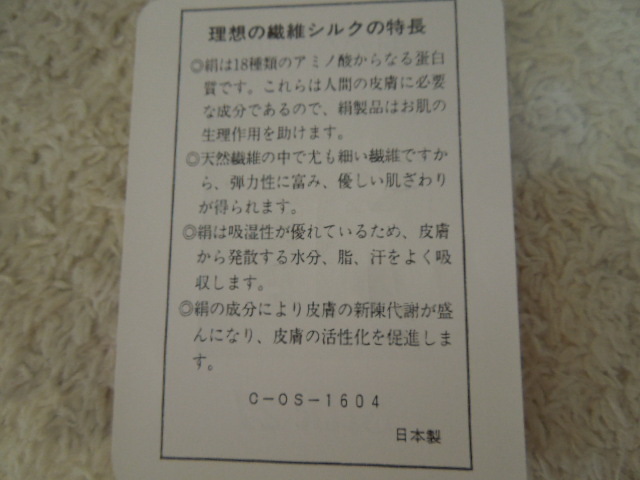 理想の繊維シルクの特長
◎絹は18種類のアミノ酸からなる蛋白
質です。これらは人間の皮膚に必要
な成分であるので、絹製品はお肌の
生理作用を助けます。
◎天然繊維の中で尤も細い繊維ですか
ら、弾力性に富み、優しい肌ざわり
が得られます。
◎絹は吸湿性が優れているため、皮膚
から発散する水分、脂、汗をよく吸
収します。
◎絹の成分により皮膚の新陳代謝が盛
んになり、皮膚の活性化を促進しま
す。
C-OS-1604
日本製